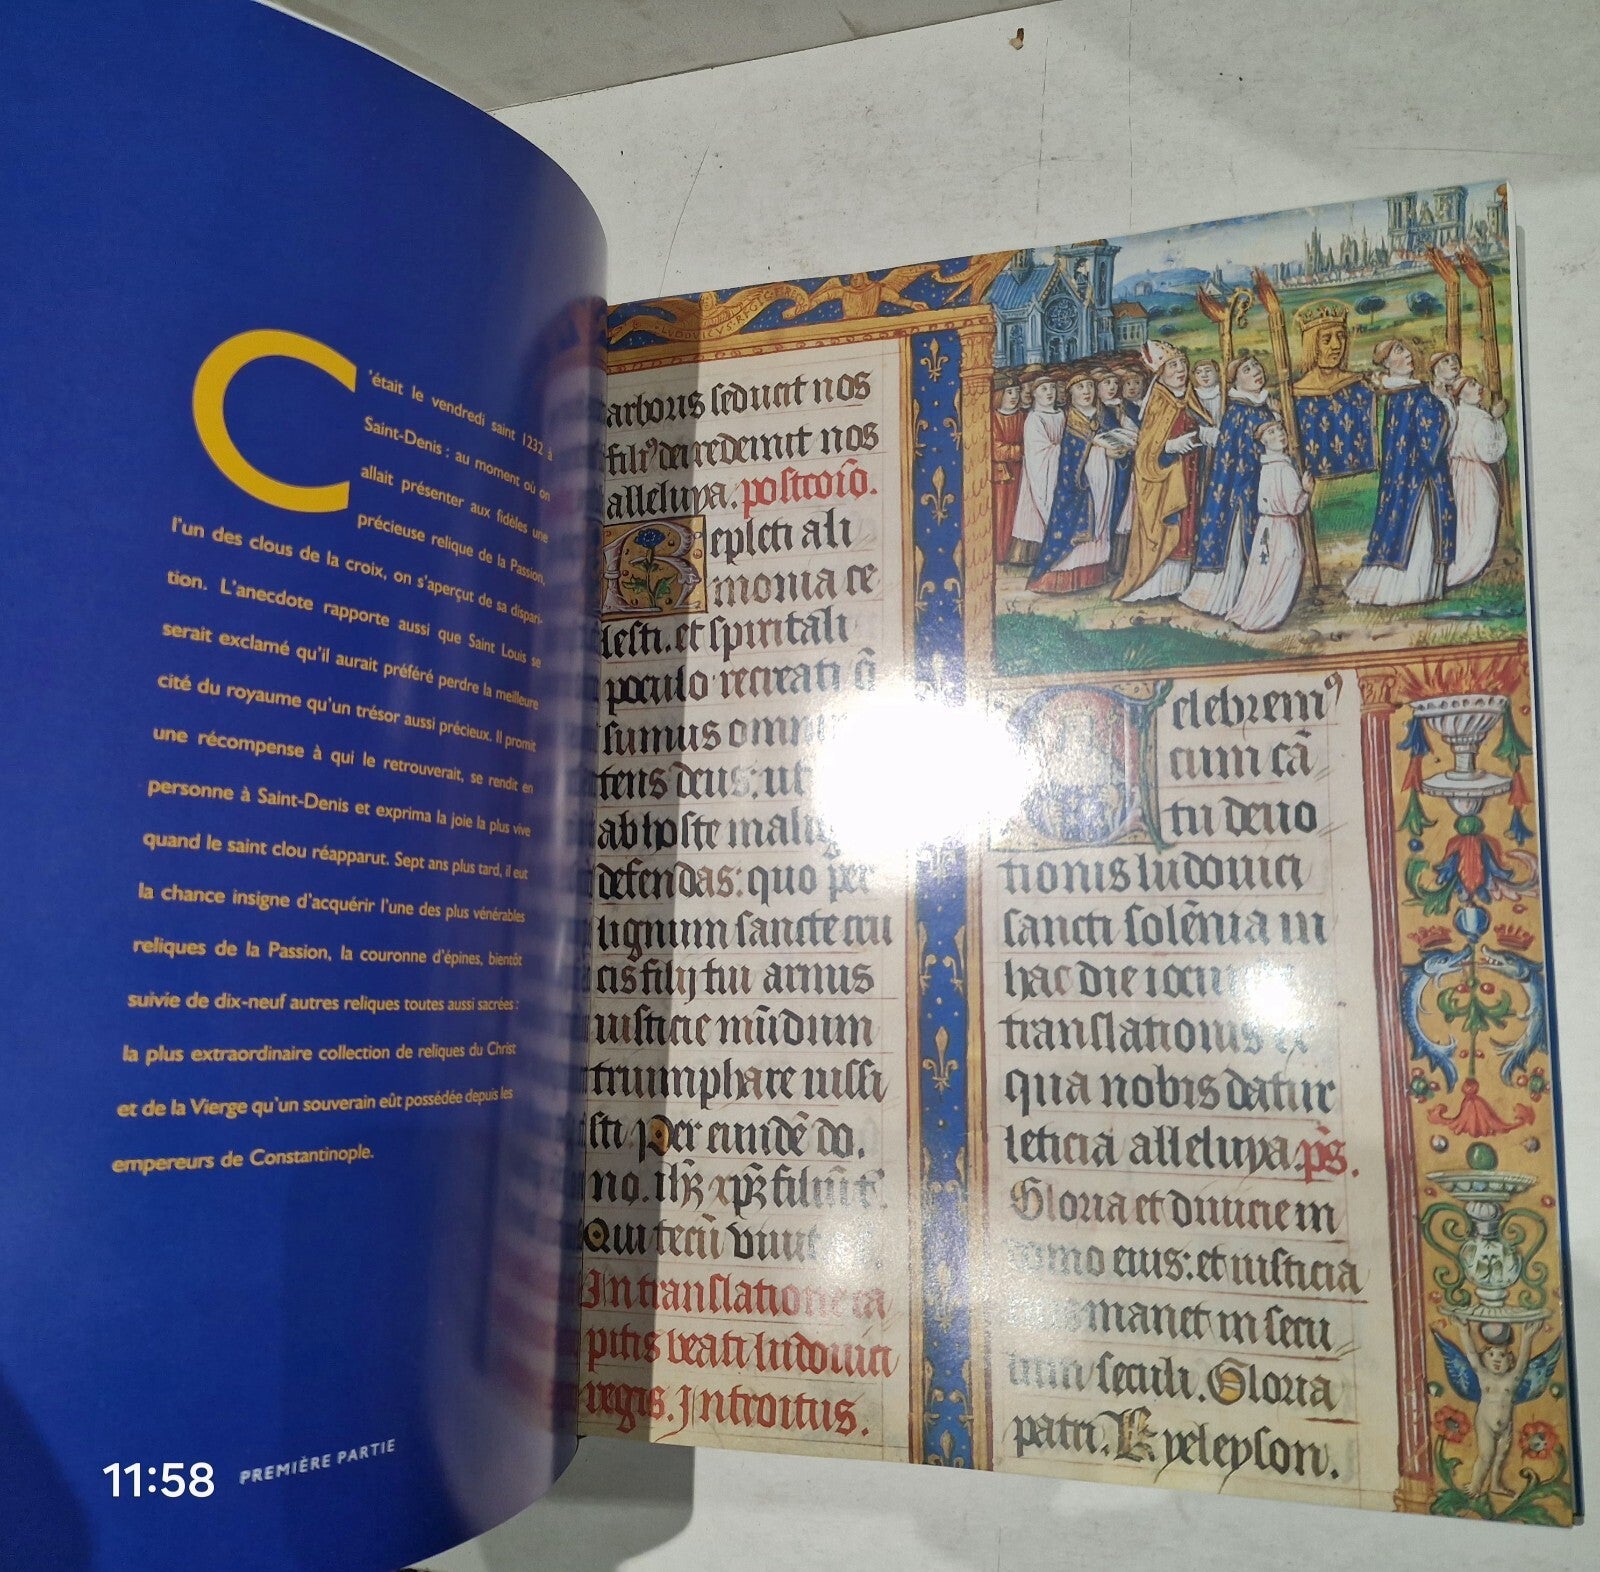 C'était le vendredi saint 1232 à
Saint-Denis : au moment où on
allait présenter aux fidèles une
précieuse relique de la Passion,
l'un des clous de la croix, on s'aperçut de sa dispari-
tion. L'anecdote rapporte aussi que Saint Louis se
serait exclamé qu'il aurait préféré perdre la meilleure
cité du royaume qu'un trésor aussi précieux. Il promit
une récompense à qui le retrouverait, se rendit en
personne à Saint-Denis et exprima la joie la plus vive
quand le saint clou réapparut. Sept ans plus tard, il eut
la chance insigne d'acquérir l'une des plus vénérables
reliques de la Passion, la couronne d'épines, bientôt
suivie de dix-neuf autres reliques toutes aussi sacrées :
la plus extraordinaire collection de reliques du Christ
et de la Vierge qu'un souverain eût possédée depuis les
empereurs de Constantinople.
11:58
PREMIÈRE PARTIE
LUDOVICVS REX
arboris seducit nos
filiꝰ dei redemit nos
alleluya. postcōiō.
Repleti ali
monia ce
lesti. et spiritali
poculo recreati q̄
sumus omni
tens deus: ut
ab hoste malig
defendas: quo per
lignum sancte cru
cis filij tui armis
iusticie mūdum
triumphare iussi
sti. Per eundē do.
no. ihm xpm filiū t.
Qui tecū viuit
In translatione ca
pitis beati ludouici
regis. Introitus.
Celebremꝰ
cum cā
tu deuo
tionis ludouici
sancti solēnia in
hac die iocu
translationis
qua nobis datur
leticia alleluya. p̄s.
Gloria et diuicie in
domo eius: et iusticia
manet in secu
lum seculi. Gloria
patri. Kyeleyson.